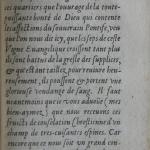 ces quartiers que l'ouurage de la toute-
puissante bonté de Dieu qui contente
les affections du souuerain Pontife, ven
que l'on nous dit icy, que les seps de ceste
Vigne Euangelique croissent tant plus
ils sont battus de la gresle des supplices,
& qu'estant taillez, pour traire heu-
reusement, ils poussent & portent une
glorieuse vendange de sang. Il faut
neantmoins que ie vous aduouë (mes
bien-aymez) que nous receuons ces
fruicts de consolation Chrestienne d'un
champ de tres-cuisantes espines. Car
encore que ce nous soit un grand con-